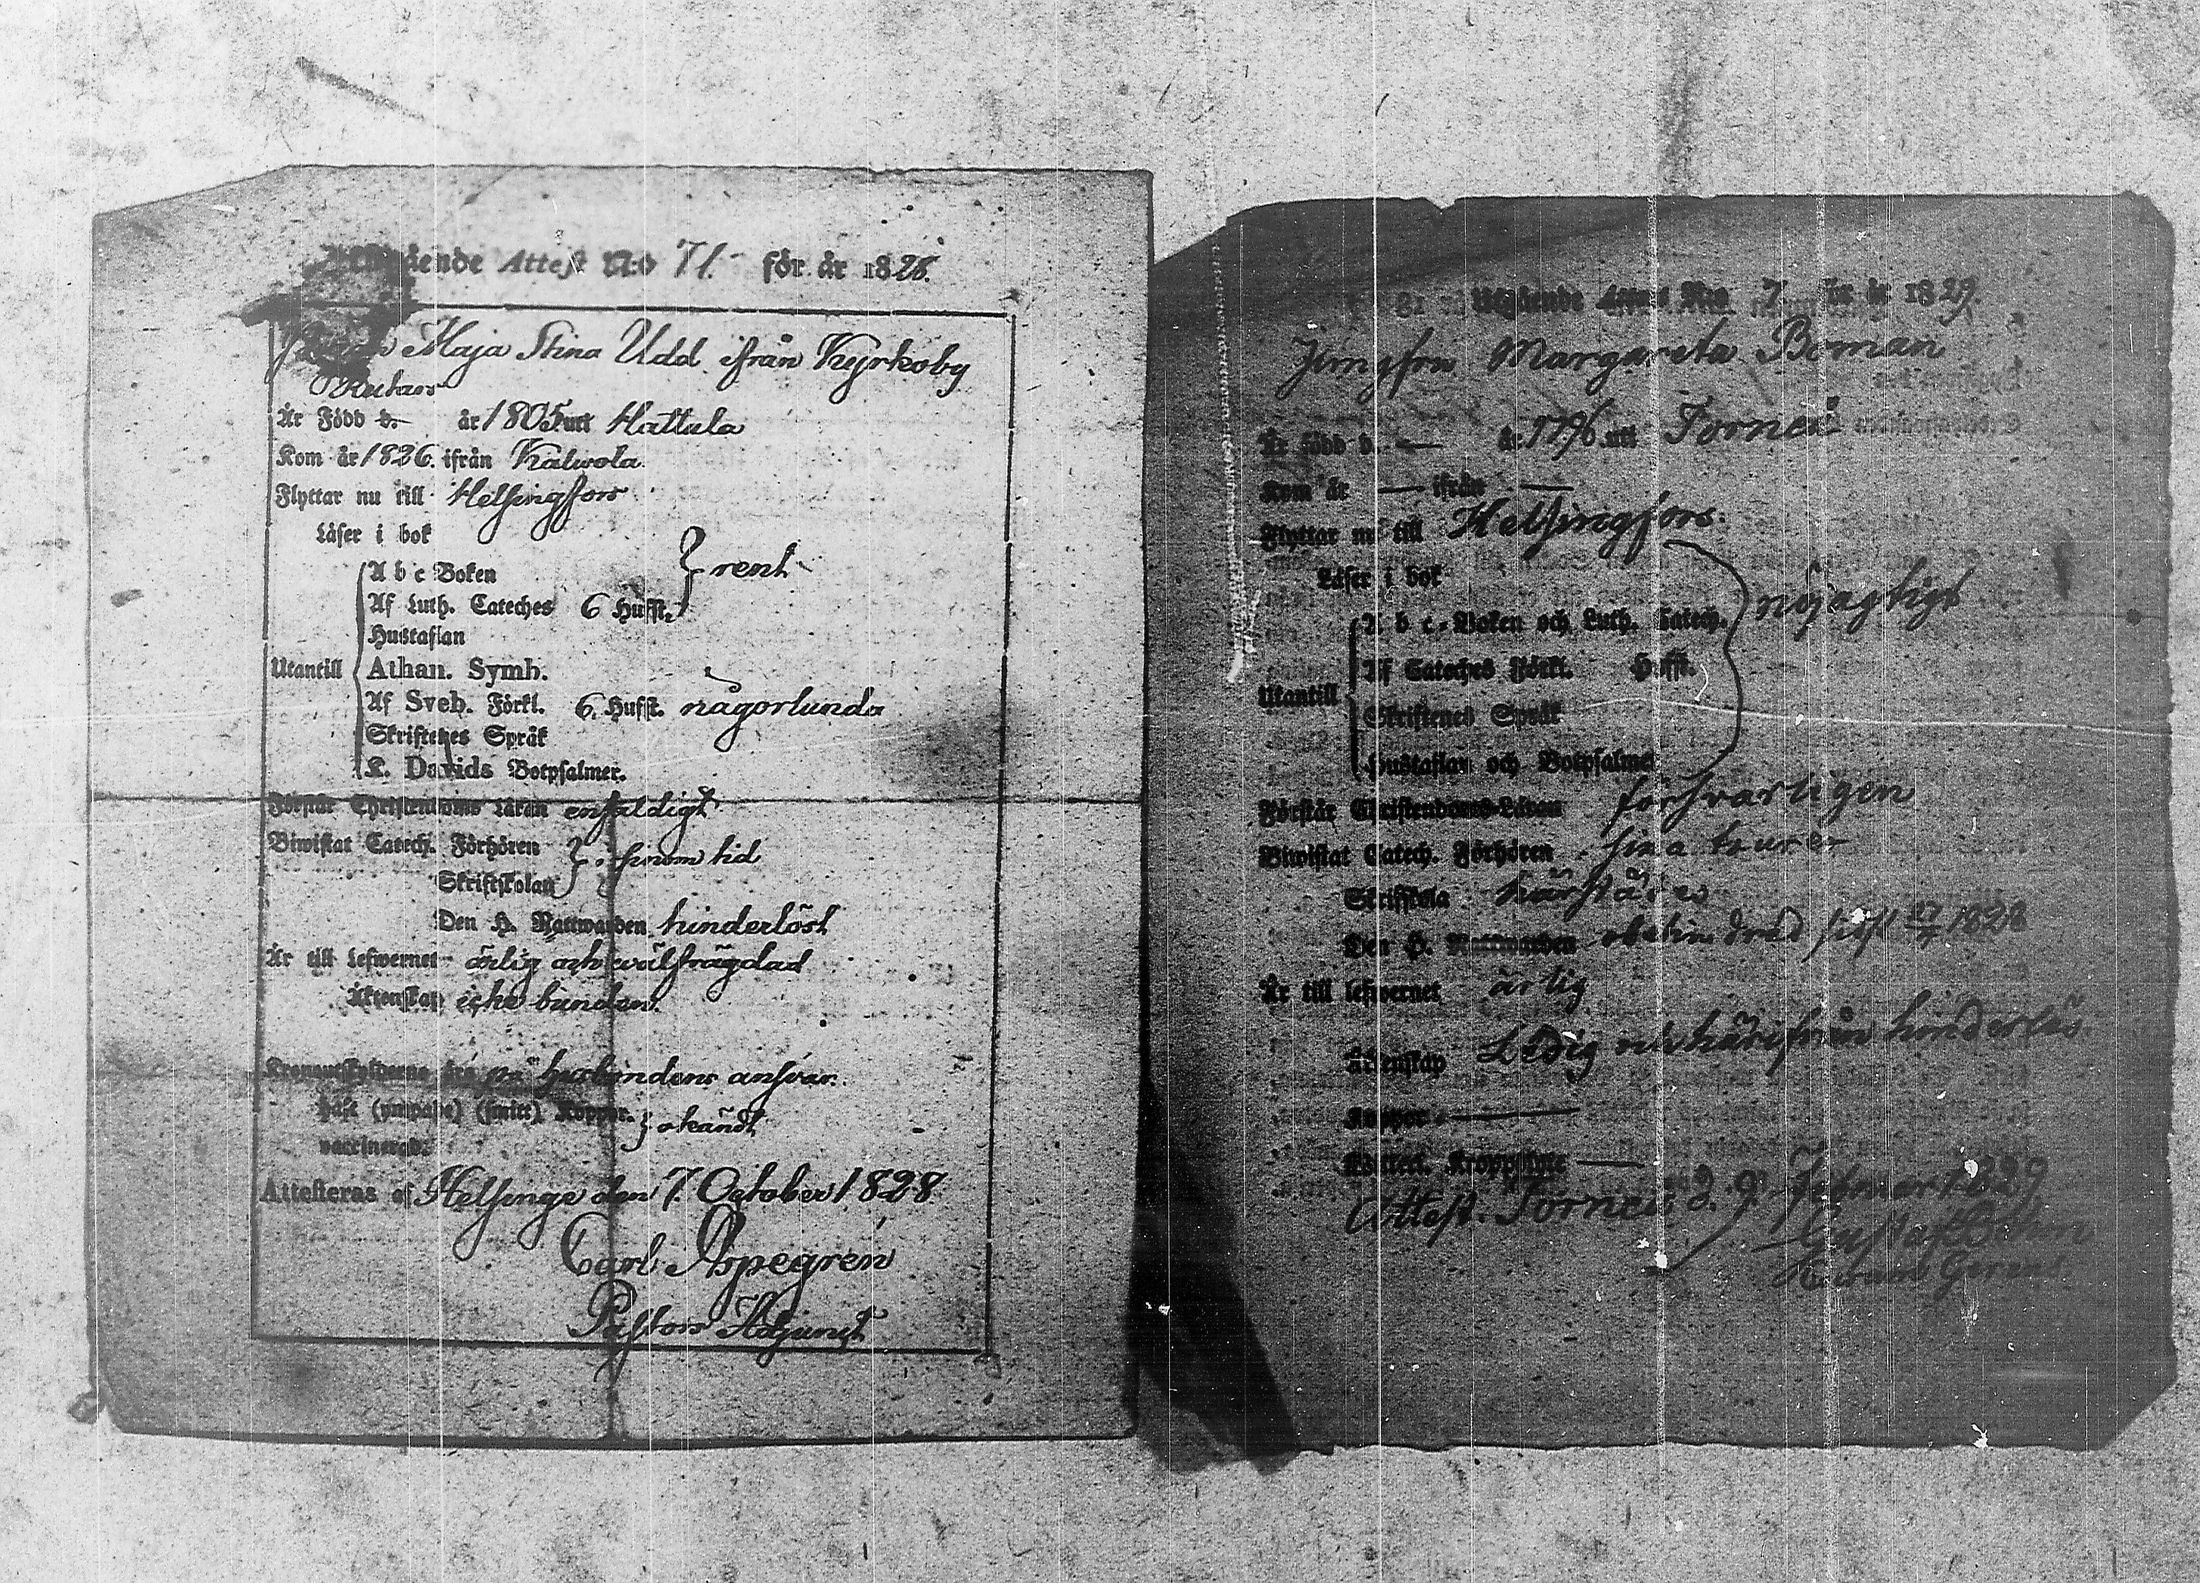 Attest N:o 71. för år 1828.
Maja Stina Udd ifrån Kyrkoby
Är Född d. — år 1805 uti Hattula
Kom år 1826. ifrån Kalwola.
Flyttar nu till Helsingfors
Läser i bok
A b c Boken } rent
Af Luth. Cateches 6 Hufst.
Hustaflan
Utantill Athan. Symb.
Af Sveb. Förkl. 6. Hufst. någorlunda
Skriftenes Språk
K. Davids Botpsalmer.
Förstår Christendoms Läran enfaldigt
Biwistat Catech. Förhören } i sinom tid
Skriftskolan
Den H. Nattwarden hinderlöst
Är till lefwernet ärlig och wälfrägdad
Äktenskap icke bunden.
ansvar.
Haft (ympade) (smitt) Koppor. } okändt
vaccinerad.
Attesteras af Helsinge den 7. October 1828
Carl Aspegrén
Pastors Adjunct
Utgående Attest N:o 7 för år 1829.
Jungfru Margareta Boman
Är född d. — år 1796 uti Torneå
Kom år — ifrån —
Flyttar nu till Helsingfors.
Läser i bok
A b c-Boken och Luth. Catech. } nöjagtigt
Af Cateches Förkl. Hufst.
Utantill
Skriftenes Språk
Hustaflan och Botpsalmer
Förstår Christendoms-Läran försvarligen
Biwistat Catech. Förhören sina turer
Skriftskola härstädes
Den H. Nattwarden obehindrad sist 1828
Är till lefwernet ärlig
Äktenskap Ledig och härifrån hinderlös
Koppor —
Kroppslyte —
Attest. Torneå d. 9. Februar. 1829
Gustaf